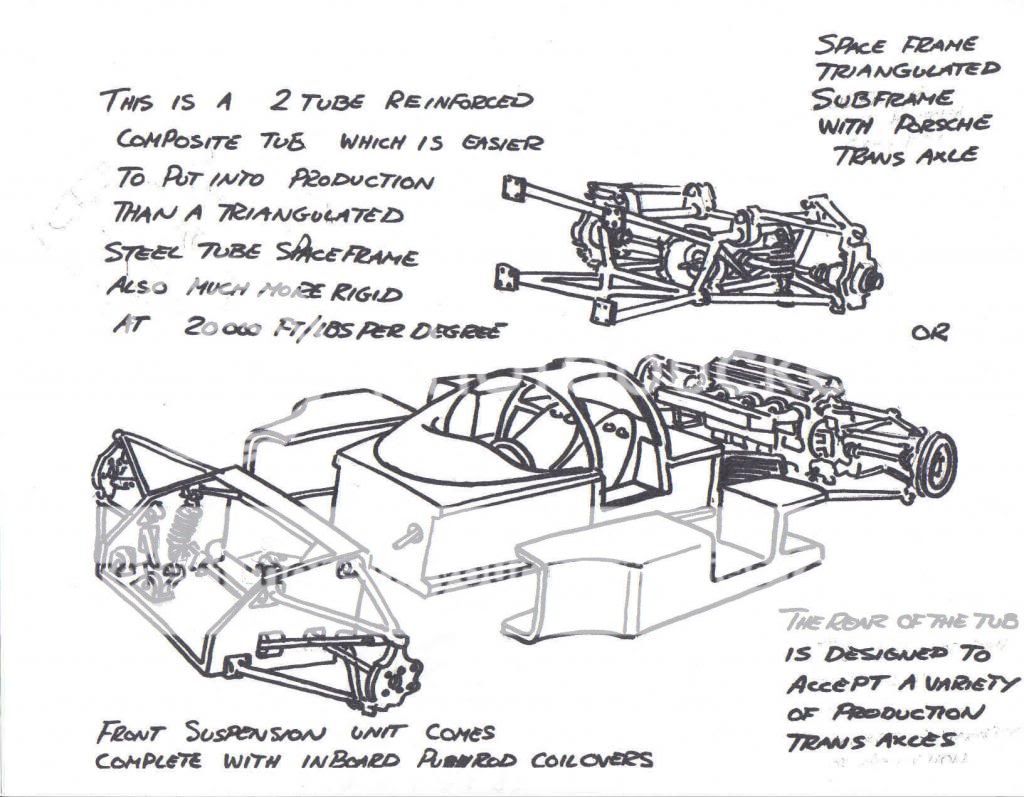 THIS IS A 2 TUBE REINFORCED
COMPOSITE TUB WHICH IS EASIER
TO PUT INTO PRODUCTION
THAN A TRIANGULATED
STEEL TUBE SPACEFRAME
ALSO MUCH MORE RIGID
AT 20000 FT/LBS PER DEGREE
SPACE FRAME
TRIANGULATED
SUBFRAME
WITH PORSCHE
TRANS AXLE
OR
THE REAR OF THE TUB
IS DESIGNED TO
ACCEPT A VARIETY
OF PRODUCTION
TRANS AXLES
FRONT SUSPENSION UNIT COMES
COMPLETE WITH INBOARD PUSHROD COILOVERS